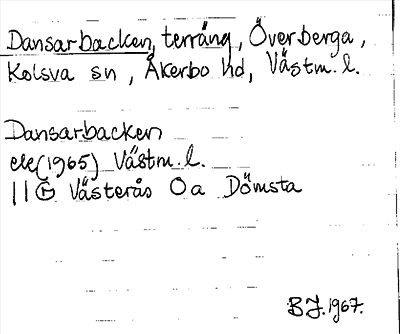 Dansarbacken, terräng, Överberga,
Kolsva sn, Åkerbo hd, Västm. l.
Dansarbacken
ek (1965) Västm. l.
11 G Västerås 0a Dömsta
B J. 1967.